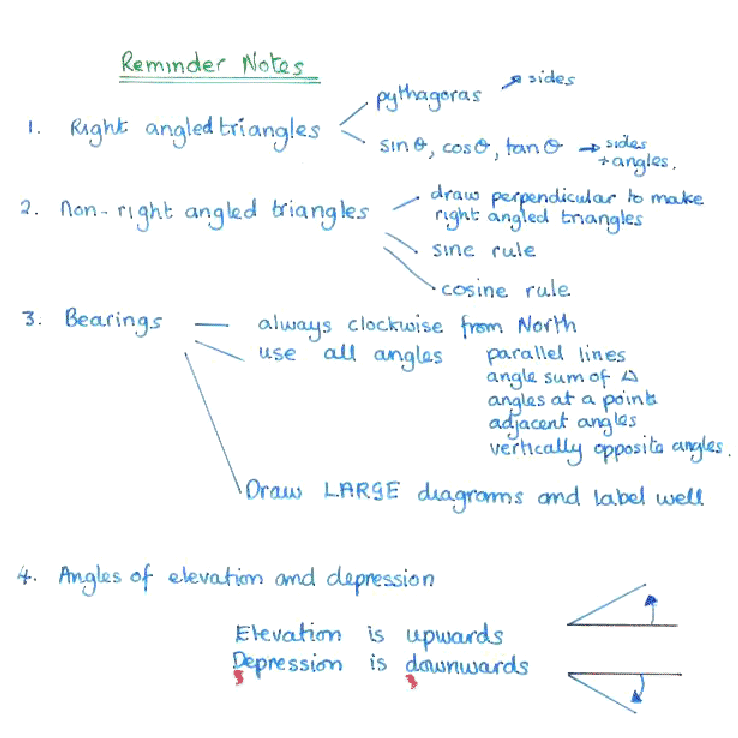 Reminder Notes
1. Right angled triangles
pythagoras → sides
sin θ, cos θ, tan θ → sides
+ angles.
2. Non-right angled triangles
draw perpendicular to make
right angled triangles
sine rule
cosine rule
3. Bearings — always clockwise from North
use all angles parallel lines
angle sum of Δ
angles at a point
adjacent angles
vertically opposite angles.
Draw LARGE diagrams and label well
4. Angles of elevation and depression
Elevation is upwards
Depression is downwards